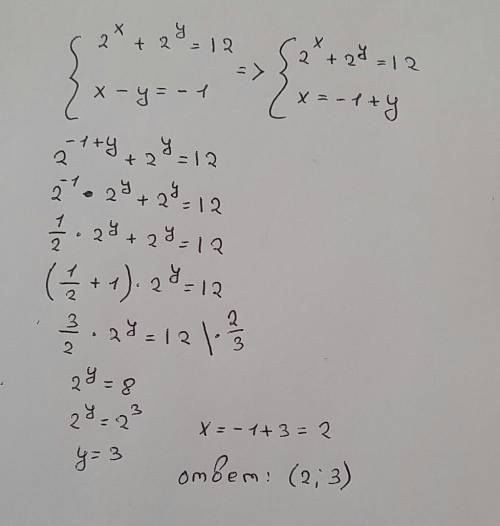 { 2^x + 2^y = 12 => { 2^x + 2^y = 12
x - y = -1 x = -1 + y
2^(-1+y) + 2^y = 12
2^(-1) · 2^y + 2^y = 12
1/2 · 2^y + 2^y = 12
(1/2 + 1) · 2^y = 12
3/2 · 2^y = 12 | · 2/3
2^y = 8
2^y = 2^3
y = 3 x = -1 + 3 = 2
ответ: (2; 3)